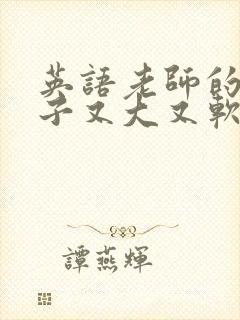 英語老師的
子又大又軟
譚燕輝